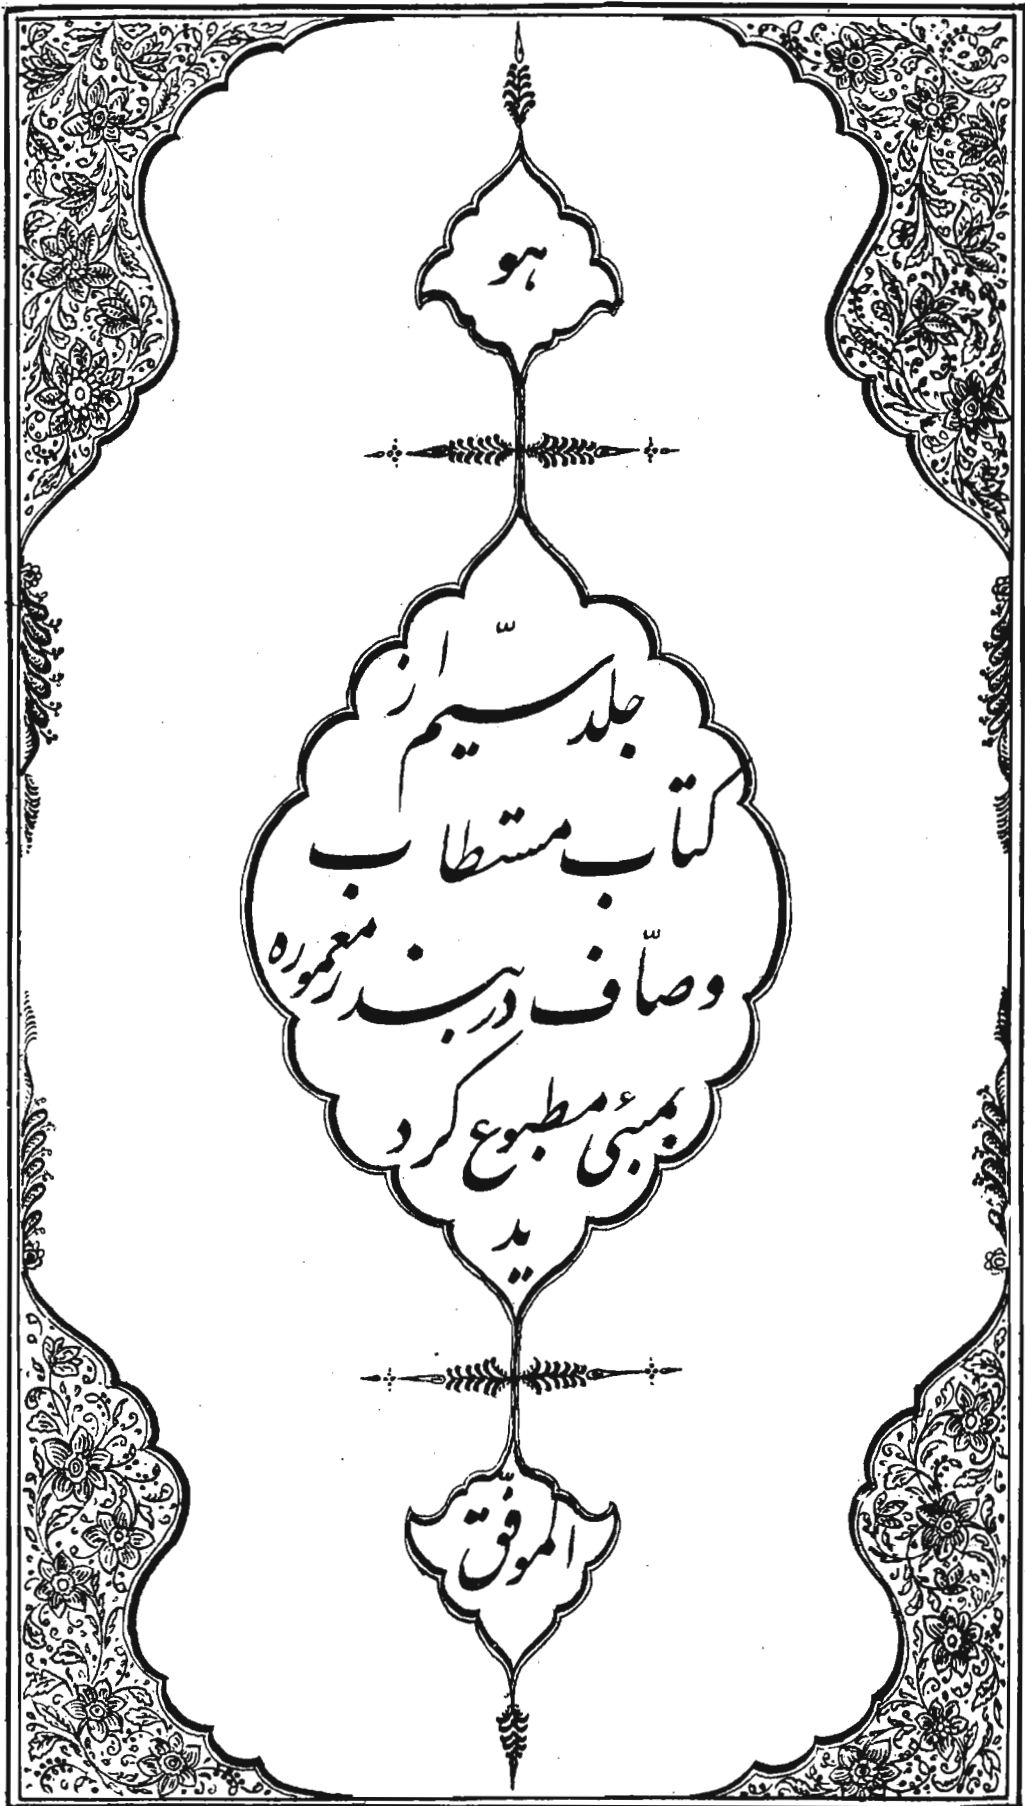 هو
جلد سیّم از
کتاب مستطاب
وصّاف در بندر معموره
بمبئی مطبوع کرد
ید
الموفّق